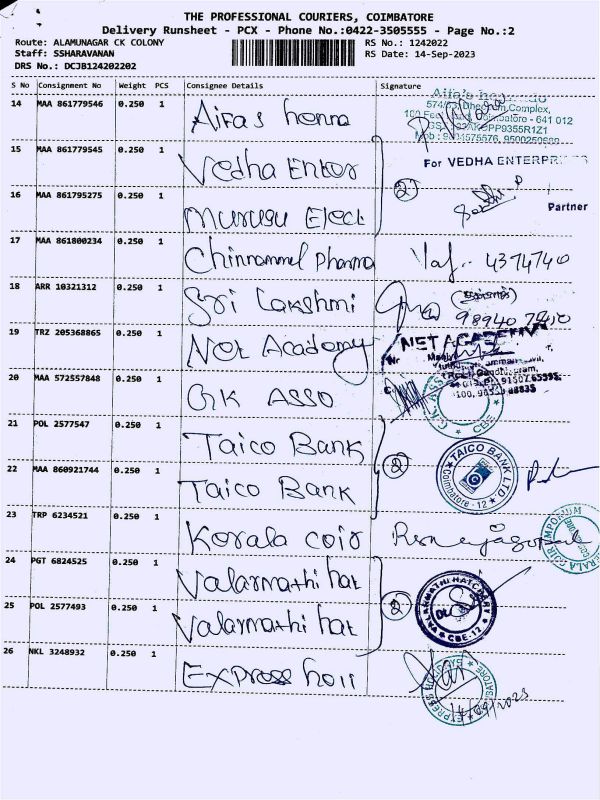 THE PROFESSIONAL COURIERS, COIMBATORE
Delivery Runsheet - PCX - Phone No.:0422-3505555 - Page No.:2
Route: ALAMUNAGAR CK COLONY RS No.: 1242022
Staff: SSHARAVANAN RS Date: 14-Sep-2023
DRS No.: DCJB124202202
S No Consignment No Weight PCS Consignee Details Signature
14 MAA 861779546 0.250 1 Aifas henna
574/53, Complex,
641 012
15 MAA 861779545 0.250 1 Vedha Enter
For VEDHA ENTERPRISES
2
16 MAA 861795275 0.250 1 Murugu Elect
Partner
17 MAA 861800234 0.250 1 Chinnammal Pharma 4374740
18 ARR 10321312 0.250 1 Sri Lakshmi
98940
19 TRZ 205368865 0.250 1 Net Academy
NET ACADEMY
20 MAA 572557848 0.250 1 GK ASSO
CBE
21 POL 2577547 0.250 1 Taico Bank
2
TAICO BANK LTD
Coimbatore - 12
22 MAA 860921744 0.250 1 Taico Bank
23 TRP 6234521 0.250 1 Kerala coir
KERALA COIR EMPORIUM
24 PGT 6824525 0.250 1 Valarmathi hat
2
VALARMATHI HATCHERY
CBE-12
25 POL 2577493 0.250 1 Valarmathi hat
26 NKL 3248932 0.250 1 Express hoII
14/09/2023